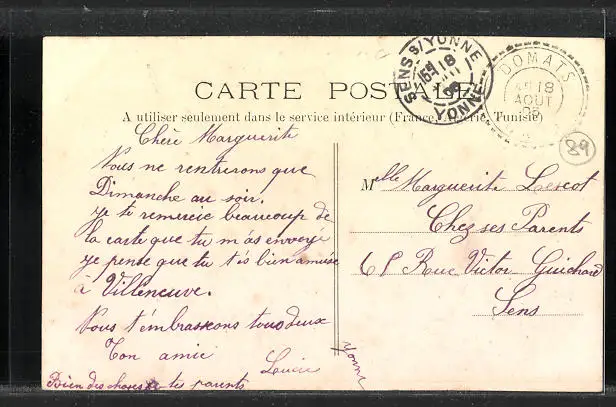 CARTE POSTALE
A utiliser seulement dans le service intérieur (France, Algérie, Tunisie)
SENS S/YONNE
YONNE
18
DOMATS
18
AOUT
89
Chère Marguerite
Nous ne rentrerons que
Dimanche au soir.
Je te remercie beaucoup de
la carte que tu m'as envoyé
je pense que tu t'es bien amusée
à Villeneuve.
Nous t'embrassons tous deux
Ton amie
Lucie
Bien des choses à tes parents
Mlle Marguerite Lescot
Chez ses Parents
Rue Victor Guichard
Sens
Yonne